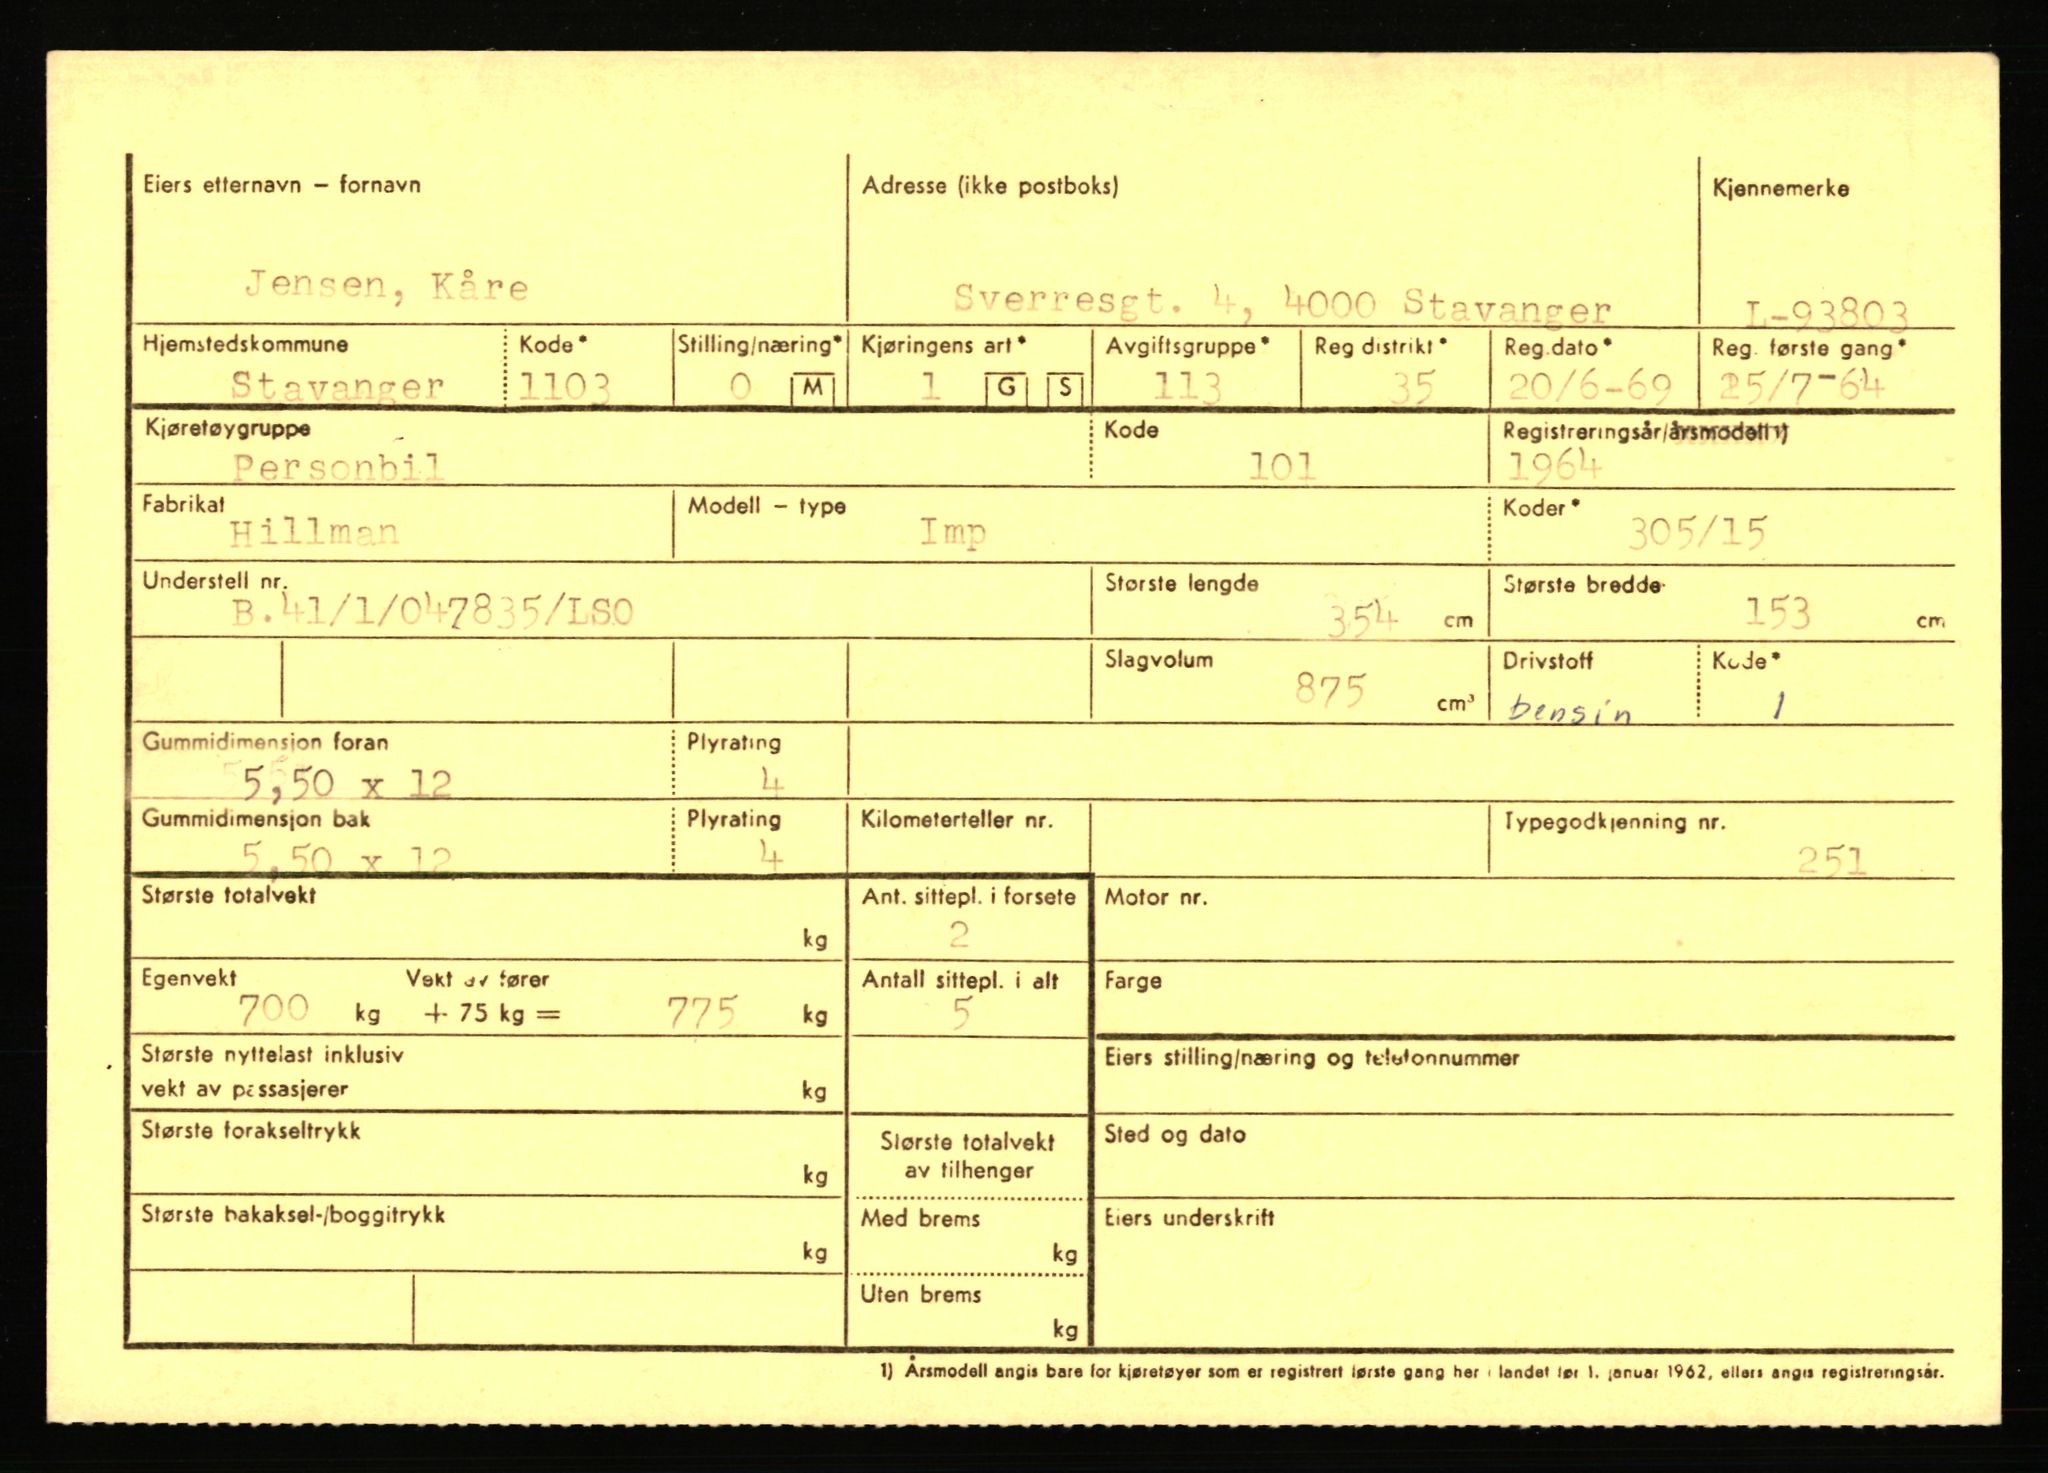 Eiers etternavn – fornavn
Adresse (ikke postboks)
Kjennemerke
Jensen, Kåre
Sverresgt. 4, 4000 Stavanger
L-93803
Hjemstedskommune
Kode*
Stilling/næring*
Kjøringens art*
Avgiftsgruppe*
Reg distrikt*
Reg.dato*
Reg. første gang*
Stavanger
1103
0 M
1 G S
113
35
20/6-69
25/7-64
Kjøretøygruppe
Kode
Registreringsår/årsmodell 1)
Personbil
101
1964
Fabrikat
Modell – type
Koder*
Hillman
Imp
305/15
Understell nr.
Største lengde
Største bredde
B.41/1/047835/LSO
354 cm
153 cm
Slagvolum
Drivstoff
Kode*
875 cm³
bensin
1
Gummidimensjon foran
Plyrating
5,50 x 12
4
Gummidimensjon bak
Plyrating
Kilometerteller nr.
Typegodkjenning nr.
5,50 x 12
4
251
Største totalvekt
Ant. sittepl. i forsete
Motor nr.
kg
2
Egenvekt
Vekt av fører
Antall sittepl. i alt
Farge
700 kg + 75 kg = 775 kg
5
Største nyttelast inklusiv
vekt av passasjerer
kg
Eiers stilling/næring og telefonnummer
Største forakseltrykk
kg
Største totalvekt
av tilhenger
Sted og dato
Største bakaksel-/boggitrykk
kg
Med brems
kg
Eiers underskrift
Uten brems
kg
1) Årsmodell angis bare for kjøretøyer som er registrert første gang her i landet før 1. januar 1962, ellers angis registreringsår.